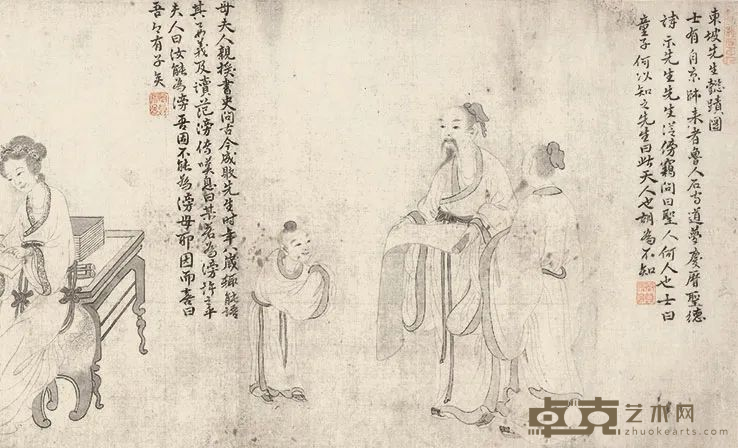 東坡先生懿蹟圖
士有自京師来者魯人石守道慶曆聖德
詩示先生先生從傍竊問曰聖人何人也士曰
童子何以知之先生曰此天人也胡為不知
母夫人親授書史問古今成敗先生時年八歲輒能語
其要義及讀范滂傳嘆息曰某若為滂許之乎
夫人曰汝能為滂吾固不能為滂母耶因而喜曰
吾々有子矣
卓克艺术网
zhuokearts.com